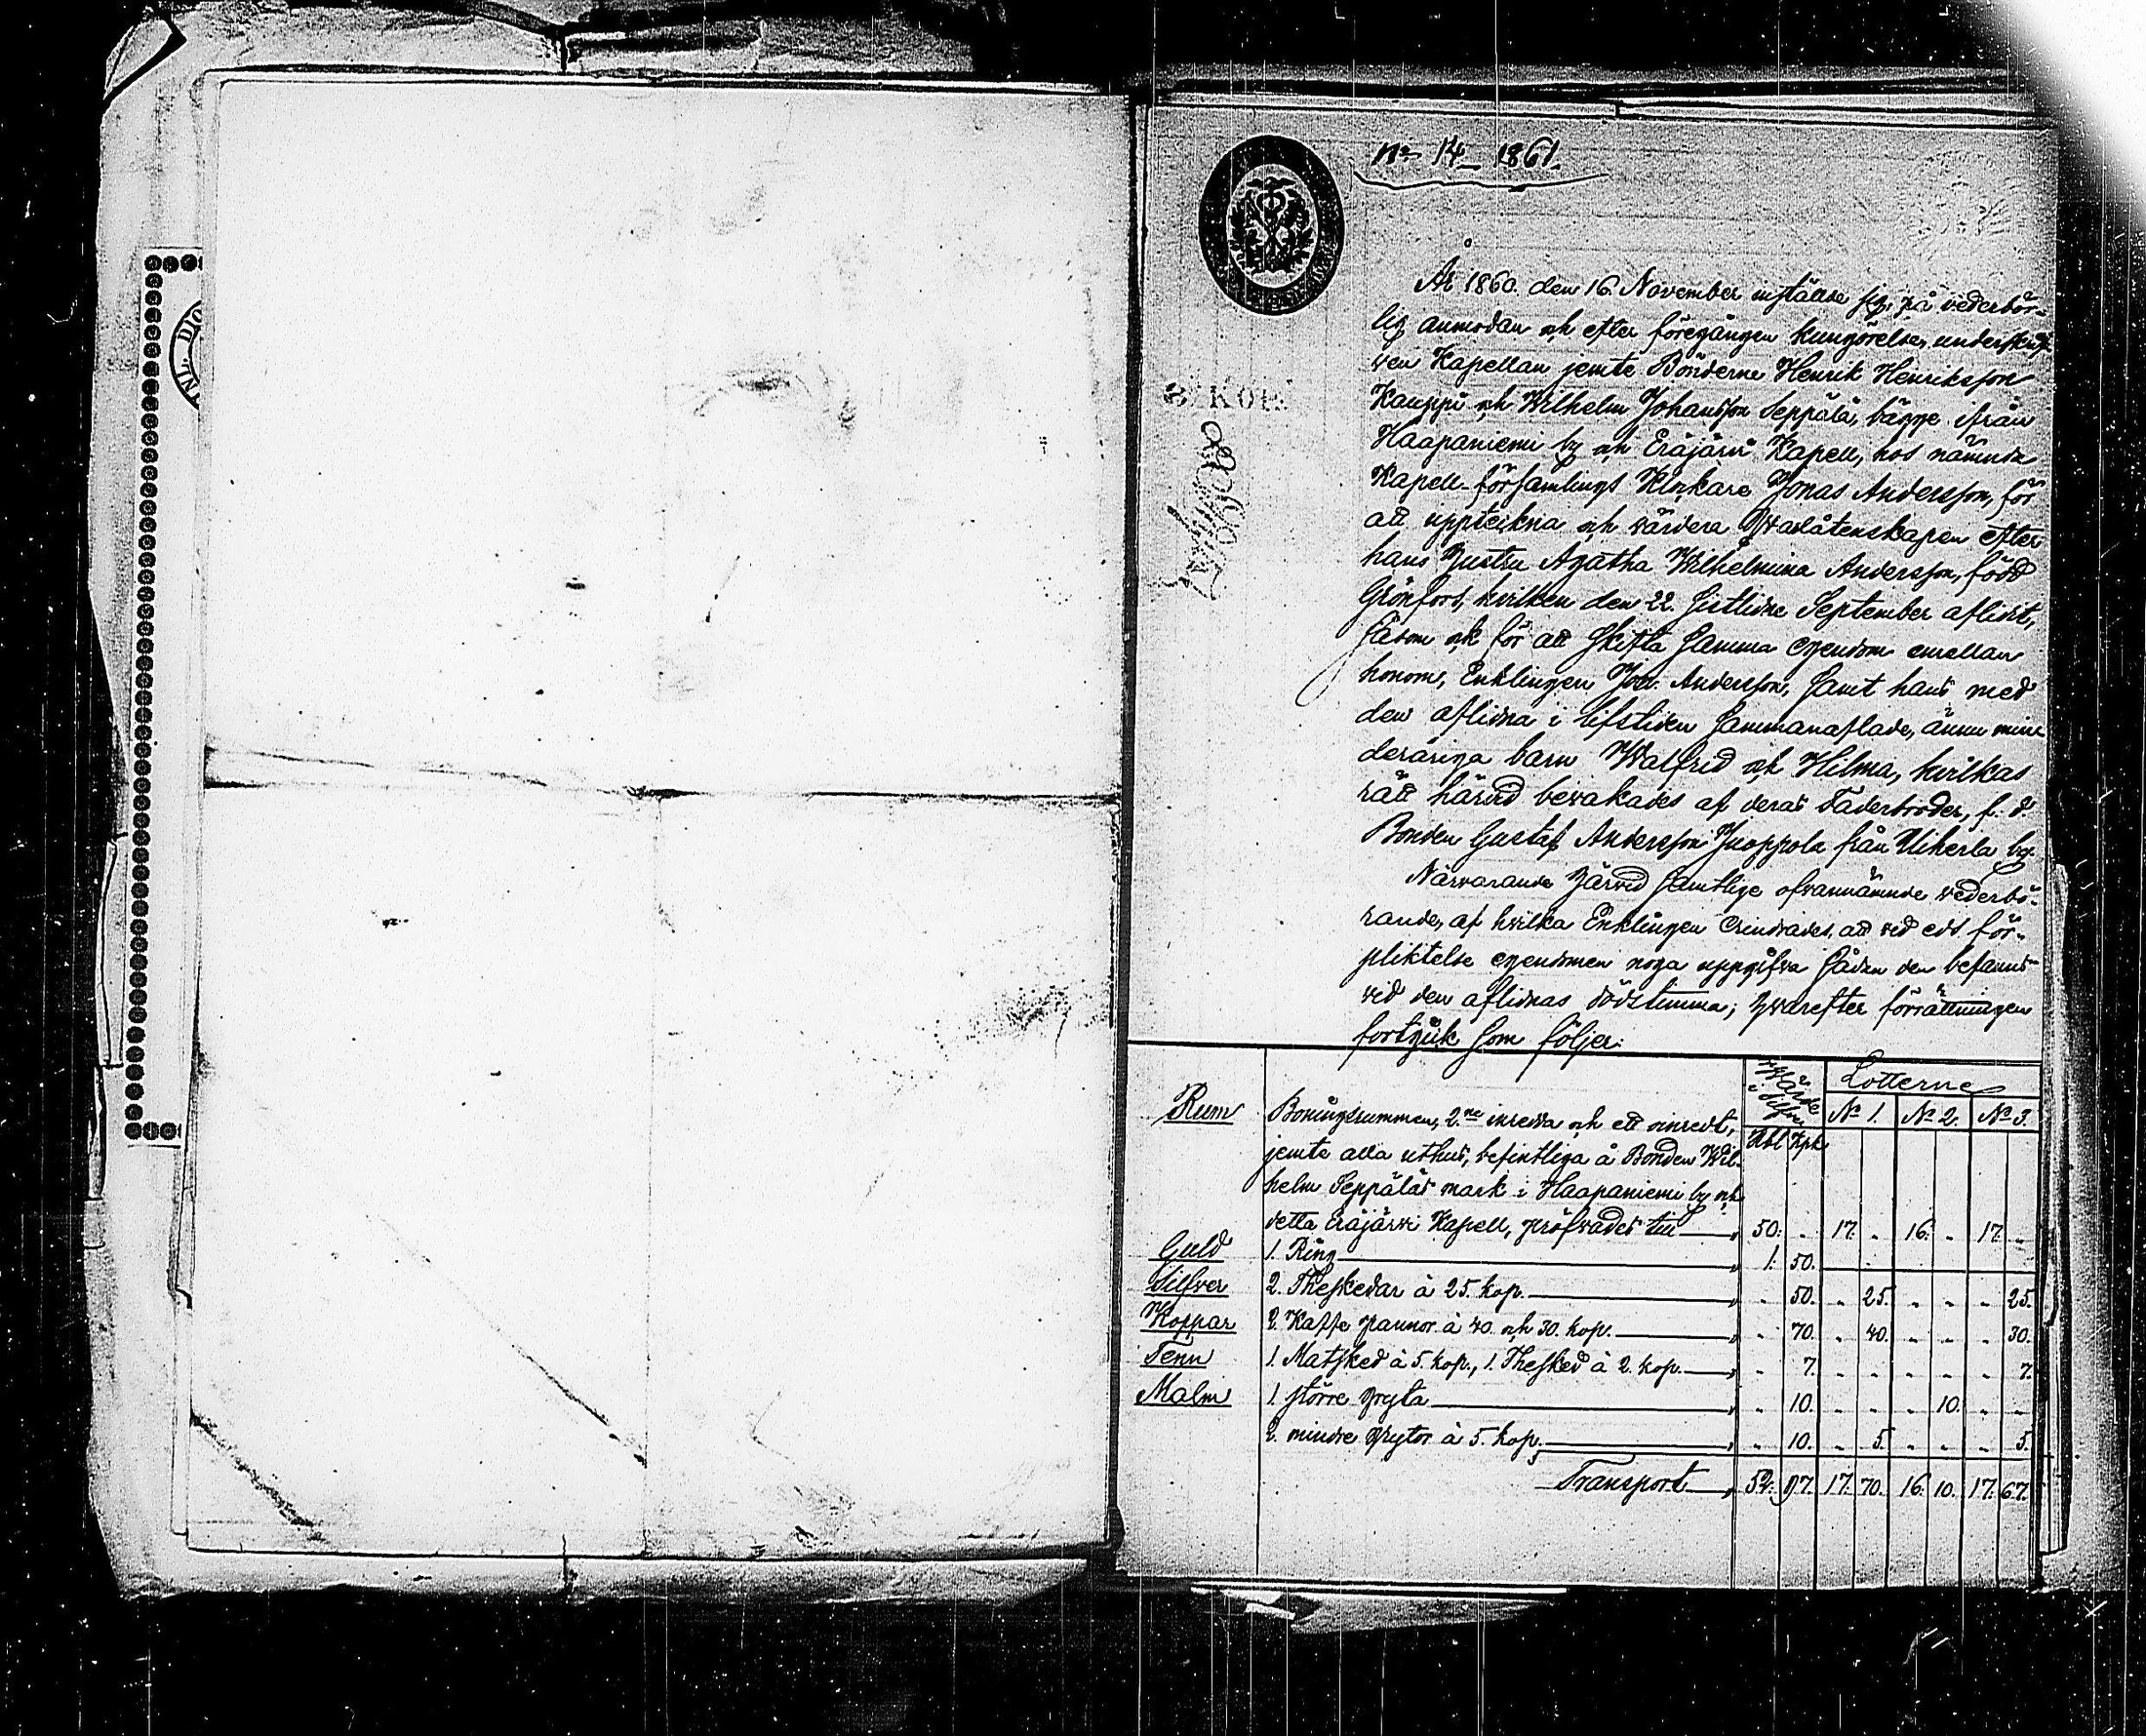 No 14 1861.
År 1860. den 16. November inställde sig, på vederbör-
lig anmodan och efter föregången kungörelse, underskref-
ven Kapellan jemte Bönderne Henrik Henriksson
Kauppi och Wilhelm Johansson Seppälä, bägge ifrån
Haapaniemi by och Eräjärvi Kapell, hos nämnde
Kapell-församlings Klockare Jonas Andersson, för
att uppteckna och värdera qvarlåtenskapen efter
hans hustru Agatha Wilhelmina Andersson, född
Grönfors, hvilken den 22. sistlidne September aflidit,
såsom ock för att skifta samma egendom emellan
honom, Enklingen Jon. Andersson, samt hans med
den aflidna i lifstiden sammanaflade, ännu min-
deråriga barn Walfrid och Hilma, hvilkas
rätt härvid bevakades af deras Faderbroder, f. d.
Bonden Gustaf Andersson Juoppola från Uiherla by.
Närvarande härvid samtlige ofvannämnde vederbö-
rande, af hvilka Enklingen erindrades, att vid eds för-
pliktelse egendomen noga uppgifva sådan den befanns
vid den aflidnas dödstimma; hvarefter förrättningen
fortgick som följer:
Värde i Silfver Lotterne
No 1. No 2. No 3.
Rbl Kpk
Rum Boningsrummen, 2.ne inredda och ett oinredt,
jemte alla uthus, befintliga å Bonden Wil-
helm Seppäläs mark i Haapaniemi by och
detta Eräjärvi Kapell, pröfvades till " 50. " 17. " 16. " 17. "
Guld 1. Ring " 1. 50.
Silfver 2. Theskedar à 25. kop. " " 50. " 25. " " " 25.
Koppar 2. Kaffe pannor à 40. och 30. kop. " " 70. " 40. " " " 30.
Tenn 1. Matsked à 5. kop., 1. Thesked à 2. kop. " " 7. " " " " " 7.
Malm 1. större gryta " " 10. " " " 10. " "
2. mindre grytor à 5. kop. " " 10. " 5. " " " 5.
Transport " 52. 97. 17. 70. 16. 10. 17. 67.